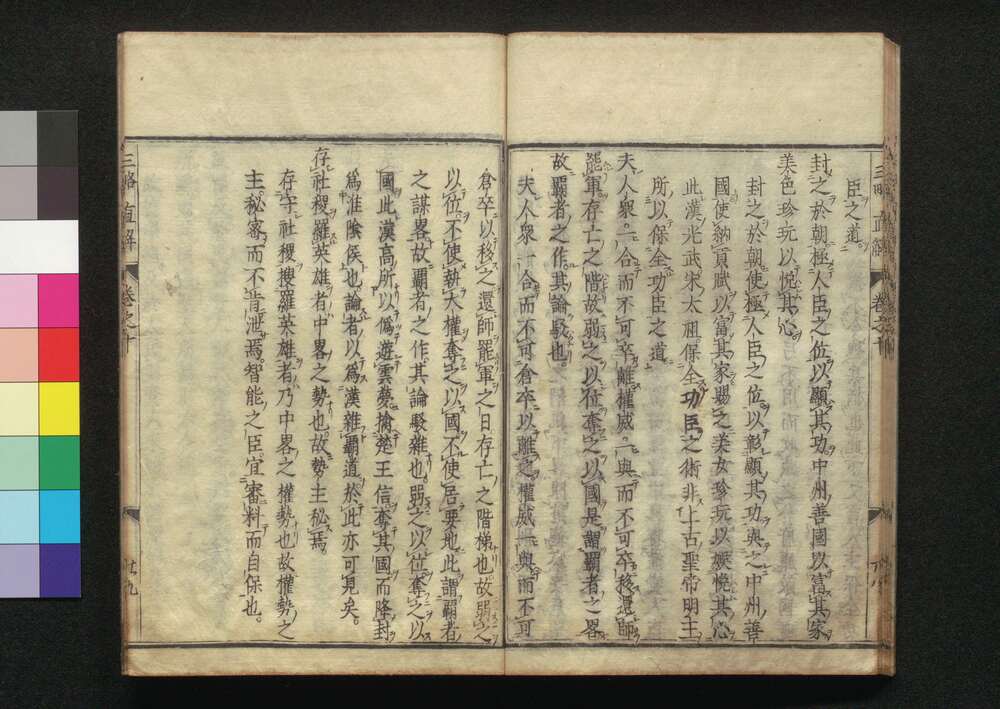 臣之道。
封之於朝極人臣之位以顯其功中州善國以富其家
美色珍玩以悅其心
封之於朝使極人臣之位以彰顯其功與之中州善
國使納貢賦以富其家賜之美女珍玩以娛悅其心
此漢光武宋太祖保全功臣之術非上古聖帝明主
所以保全功臣之道
夫人衆一合而不可卒離權威一與而不可卒移還師
罷軍存亡之階故弱之以位奪之以國是謂霸者之畧
故霸者之作其論駁也
夫人衆一合而不可倉卒以離之權威一與而不可
倉卒以移之還師罷軍之日存亡之階梯也故弱之
以位不使執大權奪之以國不使居要地此謂霸者
之謀畧故霸者之作其論駁雜也弱之以位奪之以
國此漢高所以僞遊雲夢擒楚王信奪其國而降封
爲淮陰侯也論者以爲漢雜霸道於此亦可見矣。
存社稷羅英雄者中畧之勢也故勢主秘焉
存守社稷搜羅英雄者乃中畧之權勢也故權勢之
主。秘密而不肯泄焉。智能之臣宜審料而自保也。
三略直解
卷之十
廿九